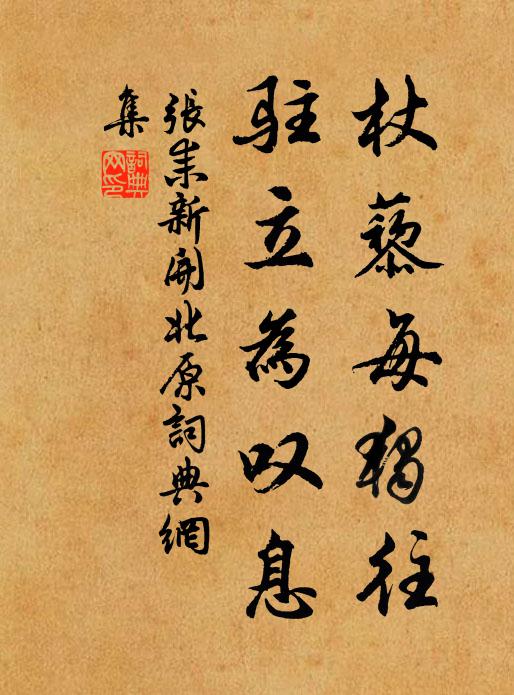 杖藜每獨往
駐立為叹息
張耒新開北原詞典網
集
詞典網印